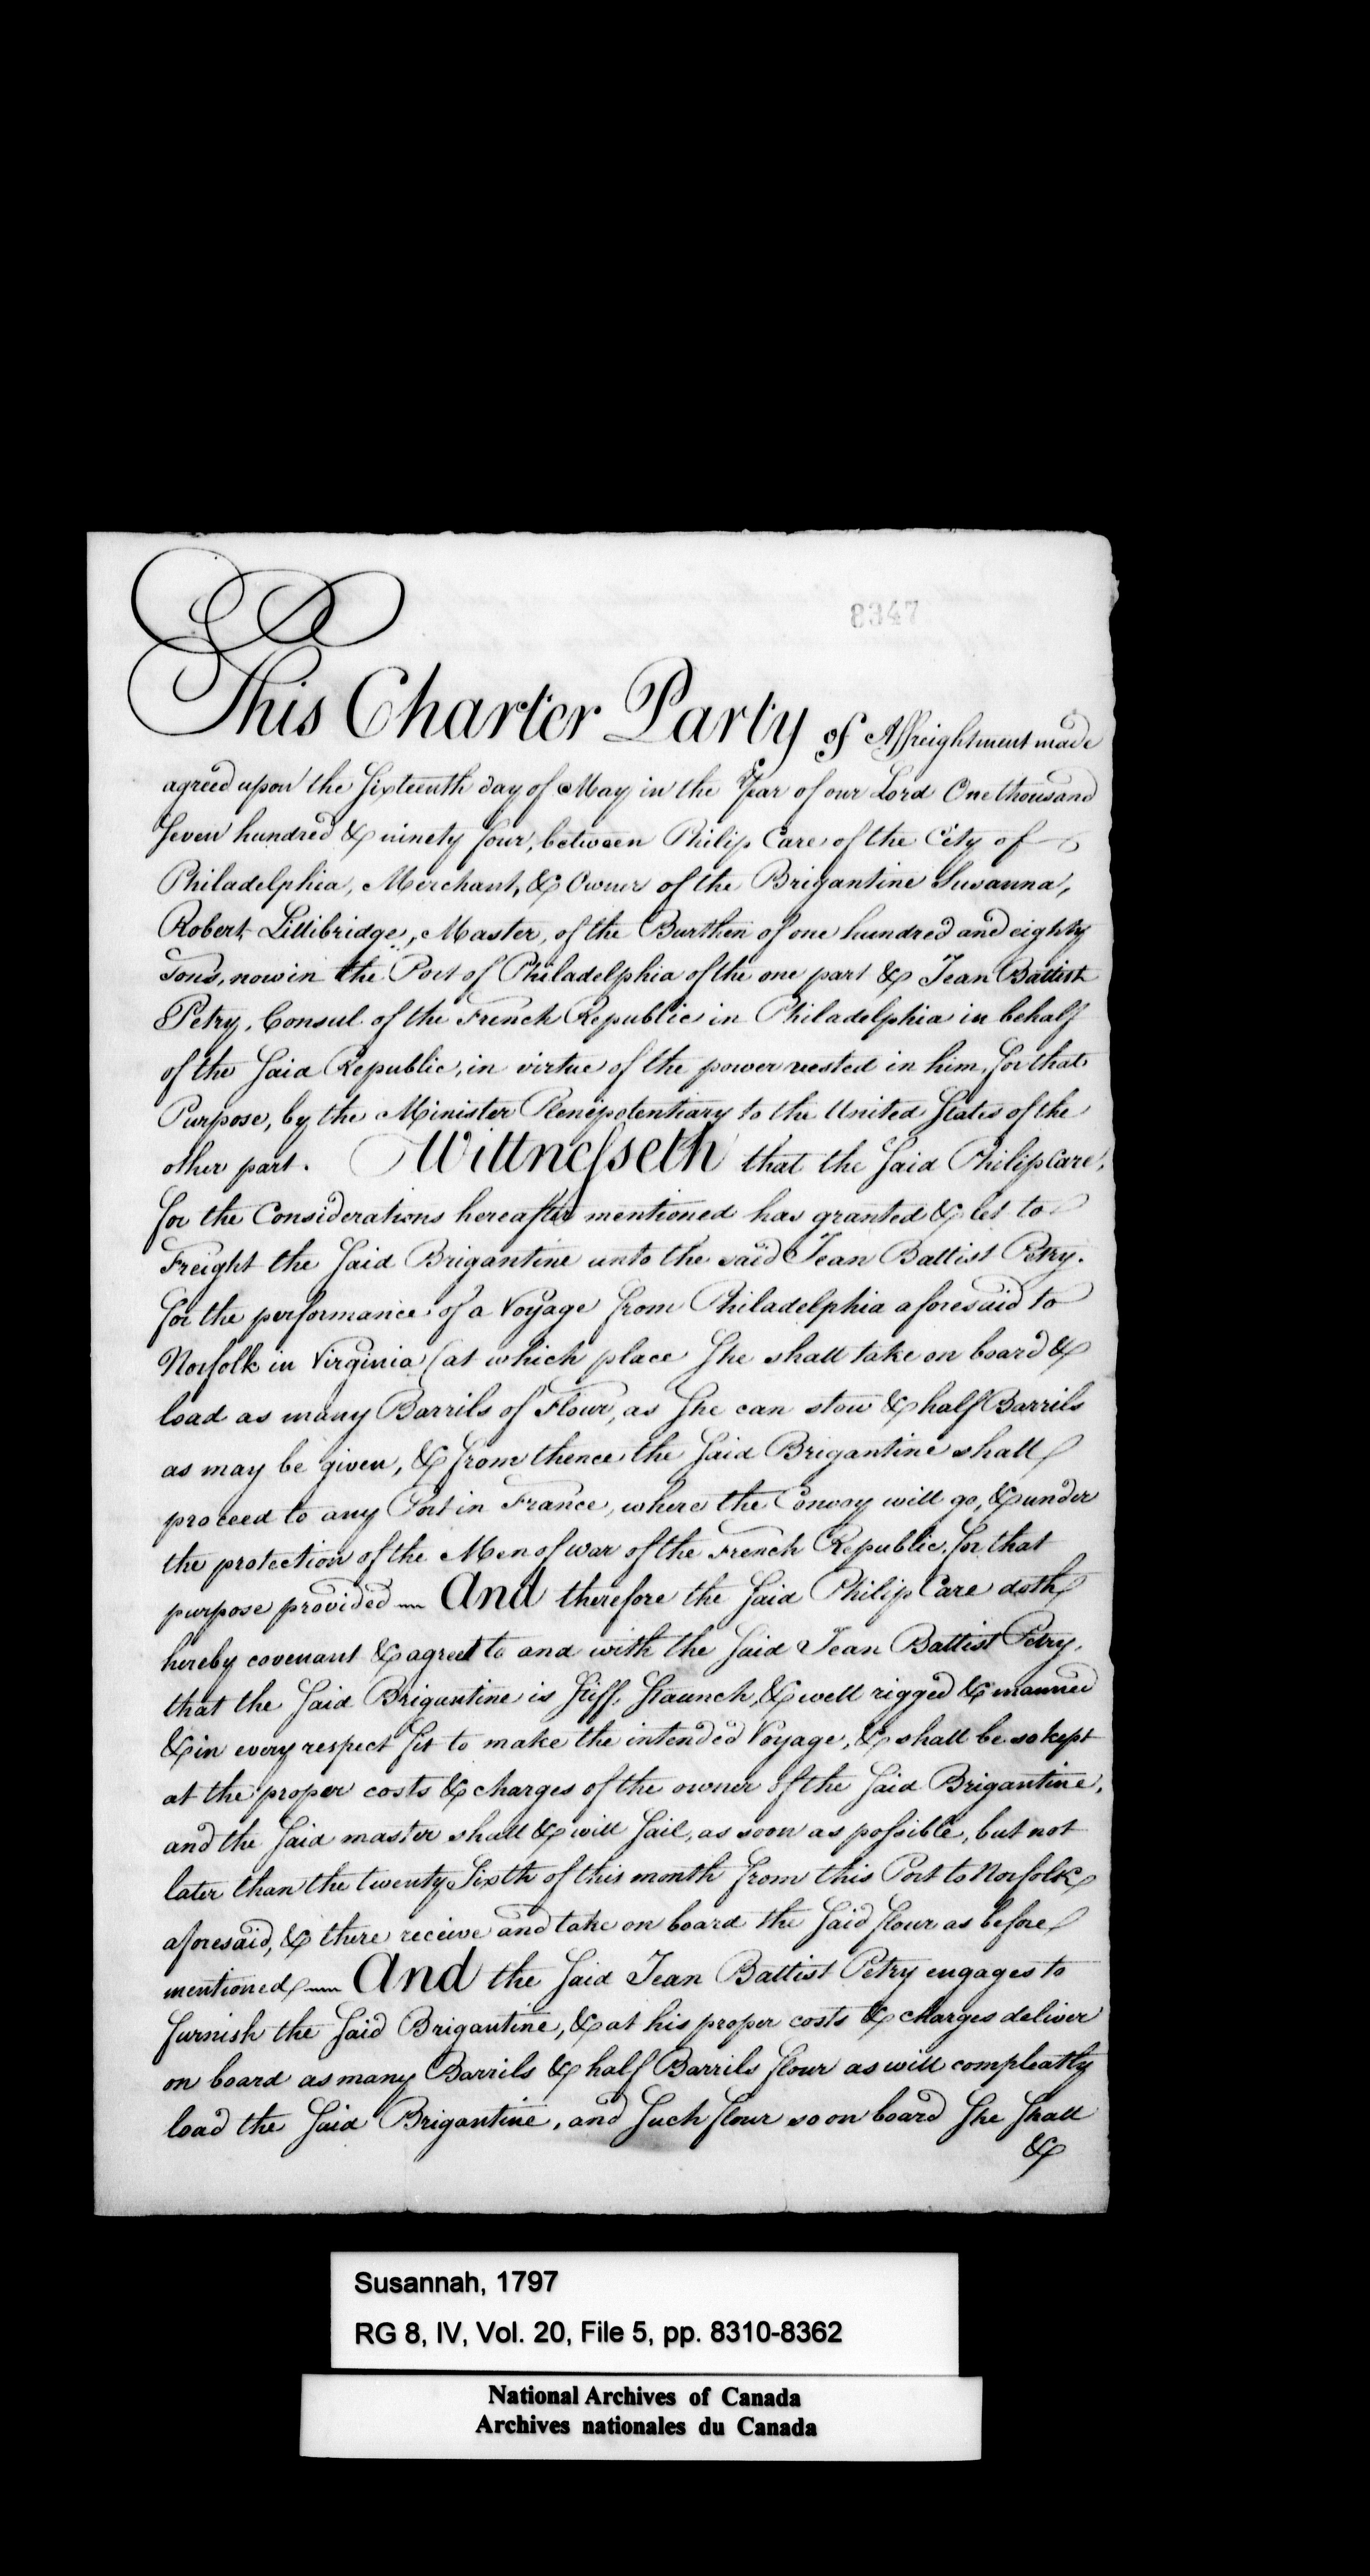 8347
This Charter Party of Affreightment made
agreed upon the Sixteenth day of May in the Year of our Lord One thousand
Seven hundred & ninety four, between Philip Care of the City of
Philadelphia, Merchant, & Owner of the Brigantine Susanna,
Robert Lillibridge, Master, of the Burthen of one hundred and eighty
Tons, now in the Port of Philadelphia of the one part & Jean Battist
Petry, Consul of the French Republic in Philadelphia in behalf
of the Said Republic, in virtue of the power vested in him, for that
Purpose, by the Minister Plenipotentiary to the United States of the
other part. Wittnesseth that the Said Philip Care,
for the Considerations hereafter mentioned has granted & let to
Freight the Said Brigantine unto the said Jean Battist Petry.
for the performance of a Voyage from Philadelphia aforesaid to
Norfolk in Virginia (at which place She shall take on board &
load as many Barrils of Flour, as She can stow & half Barrils
as may be given, & from thence the Said Brigantine shall
proceed to any Port in France, where the Convoy will go, & under
the protection of the Men of war of the French Republic, for that
purpose provided — And therefore the Said Philip Care doth
hereby covenant & agreet to and with the Said Jean Battist Petry,
that the Said Brigantine is Stiff, Staunch, & well rigged & manned
& in every respect fit to make the intended Voyage, & shall be so kept
at the proper costs & charges of the owner of the Said Brigantine,
and the Said master shall & will Sail, as soon as possible, but not
later than the twenty Sixth of this month from this Port to Norfolk
aforesaid, & there receive and take on board the Said flour as before
mentioned — And the Said Jean Battist Petry engages to
furnish the Said Brigantine, & at his proper costs & charges deliver
on board as many Barrils & half Barrils flour as will compleatly
load the Said Brigantine, and Such flour so on board She Shall
&
Susannah, 1797
RG 8, IV, Vol. 20, File 5, pp. 8310-8362
National Archives of Canada
Archives nationales du Canada